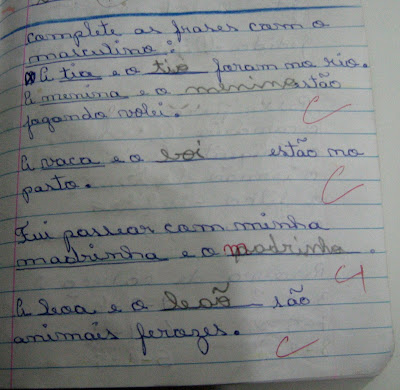 complete as frases com o
masculino:
A tia e o tio foram no rio.
A menina e o menino estão
jogando volei.
C
A vaca e o boi estão no
pasto.
C
Fui passear com minha
madrinha e o padrinho.
A leoa e o leaõ são
animais ferozes.
C